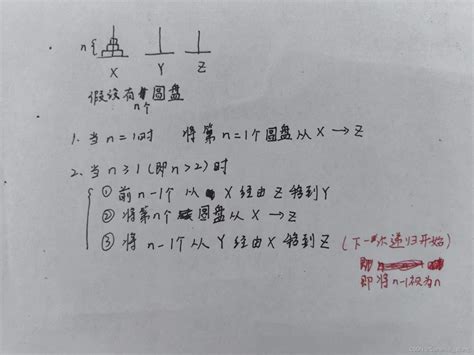 n{
X Y Z
假设有n个圆盘
1. 当n=1时 将第n=1个圆盘从X→Z
2. 当n>1(即n>2)时
① 前n-1个从X经由Z移到Y
② 将第n个圆盘从X→Z
③ 将n-1个从Y经由X移到Z (下一次递归开始)
即
即将n-1权为n